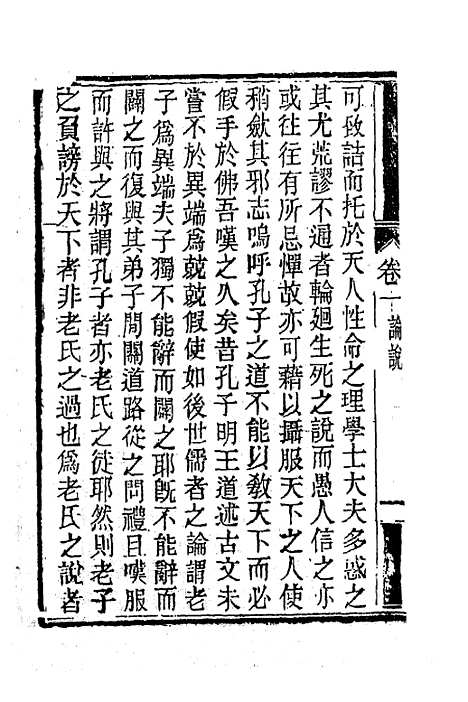 可致詰而托於天人性命之理學士大夫多惑之
其尤荒謬不通者輪廻生死之說而愚人信之亦
或往往有所忌憚故亦可藉以攝服天下之人使
稍斂其邪志嗚呼孔子之道不能以敎天下而必
假手於佛吾嘆之久矣昔孔子明王道述古文未
嘗不於異端爲兢兢假使如後世儒者之論謂老
子爲異端夫子獨不能辭而闢之耶旣不能辭而
闢之而復與其弟子間關道路從之問禮且嘆服
而許與之將謂孔子者亦老氏之徒耶然則老子
之負謗於天下者非老氏之過也爲老氏之說者
卷一 論說